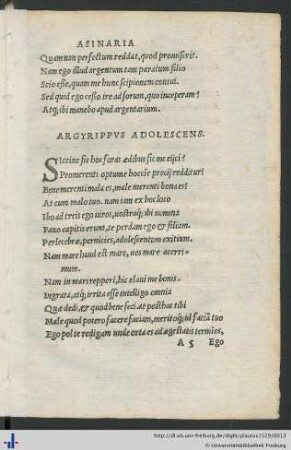 ASINARIA
Quam non perfectum reddat, quod promiserit.
Nam ego illud argentum tam paratum filio
Scio esse, quam me hunc scipionem contui.
Sed quid ego cesso ire ad forum, quo inceperam?
Atq; ibi manebo apud argentarium.
ARGYRIPPVS ADOLESCENS.
SIccine sit hoc foras ædibus sic me eijci?
Promerenti optume hoccine precij redditur?
Bene merenti mala es, male merenti bona es?
At cum malo tuo. nam iam ex hoc loco
Ibo ad treis ego uiros, uostraq; ibi nomina
Faxo capitis erunt, te perdam ego & filiam.
Perlecebræ, pernicies, adolescentum exitium.
Nam mare haud est mare, uos mare acerri=
mum.
Nam in mari repperi, hic elaui me bonis.
Ingrata, atq; irrita esse intelligo omnia
Quæ dedi, & quod bene feci. at posthac tibi
Male quod potero facere faciam, meritoq; id faciã tuo
Ego pol te redigam unde orta es ad ægestatis termĩes,
A 5 Ego
http://dl.ub.uni-freiburg.de/diglit/plautus1129/0013
© Universitätsbibliothek Freiburg